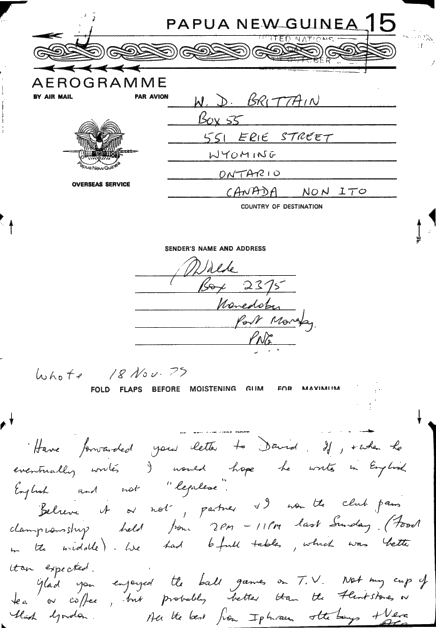 PAPUA NEW GUINEA 15
UNITED NATIONS
AEROGRAMME
BY AIR MAIL PAR AVION
W. D. BRITTAIN
Box 55
551 ERIE STREET
WYOMING
ONTARIO
CANADA NON 1TO
Papua New Guinea
OVERSEAS SERVICE
COUNTRY OF DESTINATION
SENDER'S NAME AND ADDRESS
Box 2375
Konedobu
Port Moresby
PNG
18 Nov. 79
FOLD FLAPS BEFORE MOISTENING GUM FOR MAXIMUM
Have forwarded your letter to David. If, + when he
eventually writes I would hope he writes in English
English and not "legalese".
Believe it or not, partner + I won the club pairs
championship held from 2PM - 11PM last Sunday. (Food
in the middle). We had 6 full tables, which was better
than expected.
Glad you enjoyed the ball games on T.V. Not my cup of
tea or coffee, but probably better than the Flintstones or
Flash Gordon. All the best from + Vera